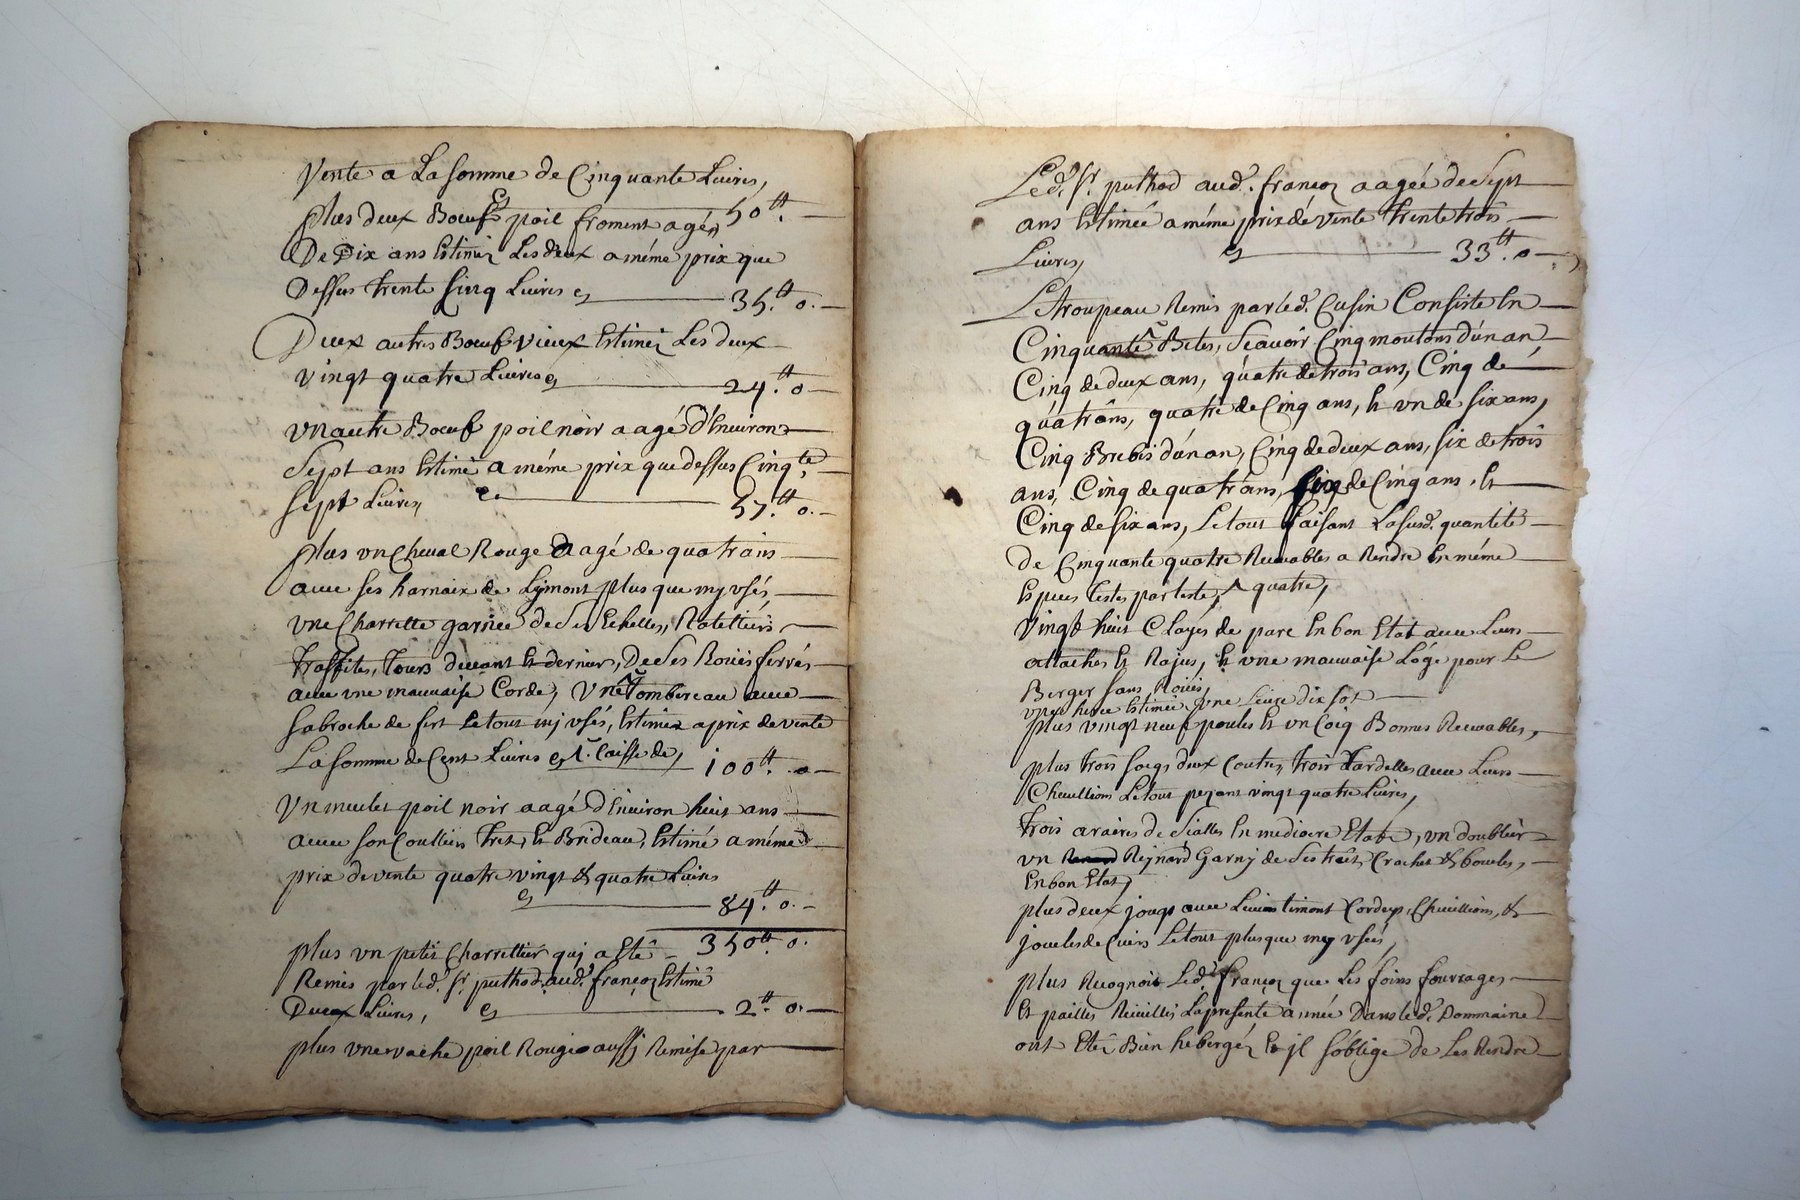 Vente a La somme de Cinquante Livres,
Cy 50tt.
plus deux Bœufs poil froment agés
De Dix ans Estimez Les deux a méme prix que
Dessus trente Cinq Livres Cy 35.tt 0.
Deux autres Bœufs vieux Estimez Les deux
vingt quatre Livres Cy 24.tt 0
Un autre Bœuf poil noir aagé d'Environ
Sept ans Estimé a méme prix que dessus Cinq.te
Sept Livres, Cy 57.tt 0.
plus un Cheval Rouge aagé de quatr'ans
avec ses harnaix de Lymont plus que my usés
une Charrette garnie de Ses Echelles, Ratelliers
Traffites, Tours devant Et dernier, De Ses Roües ferrés
avec une mauvaise Corde, Un Tombereau avec
Sa broche de fert Le tout my usés, Estimez a prix de vente
La Somme de Cent Livres Cy 100tt. 0
Un mulet poil noir aagé d'Environ huit ans
avec son Coullier, Tret, Et Brideau, Estimé a méme
prix de vente quatre vingt & quatre Livres
Cy 84.tt 0.
350tt. 0.
plus un petit Charrettier qui a Eté
Remis par led. Sr. puthod aud. françoz Estimé
Deux Livres, Cy 2.tt 0.
plus une vache poil Rouge aussj Remise par
Led. Sr. puthod aud. françoz aagée de Sept
ans Estimée a méme prix de vente trente trois
Livres, Cy 33.tt 0
Le troupeau Remis par led. Cusin Consiste En
Cinquante Betes, Scavoir Cinq moutons d'un an
Cinq de deux ans, quatre de trois ans, Cinq de
quatr'ans, quatre de Cinq ans, Et un de Six ans,
Cinq Brebis d'un an, Cinq de deux ans, Six de trois
ans, Cinq de quatr'ans, de Cinq ans, Et
Cinq de Six ans, Le tout faisant La susd. quantité
de Cinquante quatre Recevables a Rendre En méme
Espeçes testes par teste, ^ quatre,
vingt huit Clayes de parc En bon Etat avec Leurs
attaches Et Rajus, Et une mauvaise Loge pour Le
Berger Sans Roües,
une herce Estimée une Livre dix sol
plus vingt neuf poules Et un Cocq Bonnes Recevables,
plus trois Socqs deux Coutres, trois Tardelles avec Leurs
Chevillions Le tout pezant vingt quatre Livres,
trois araires de Sialles En mediocre Etat, un doublier
un Rejnard Garnj de Ses traits, Crochet & boucles,
En bon Etat,
plus deux jougs avec Leurs timont Cordeps, Chevillions, &
joucles de Cuirs Le tout plus que my usées,
plus Recognoit Led. françoz que Les foins fourrages
Et pailles Recuillis La presente année Dans led. Dommaine
ont Eté Bien hebergéz Et jl S'oblige de Les Rendre